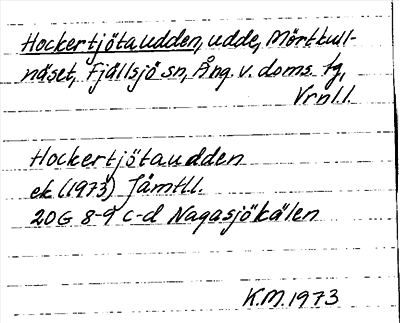 Hockertjötaudden, udde, Mörttull-
näset, Fjällsjö sn, Ång. v. doms. fg,
Vrnl.l.
Hockertjötaudden
ek (1973) Jämtl.l.
20G 8-9 c-d Nagasjökälen
K.M. 1973